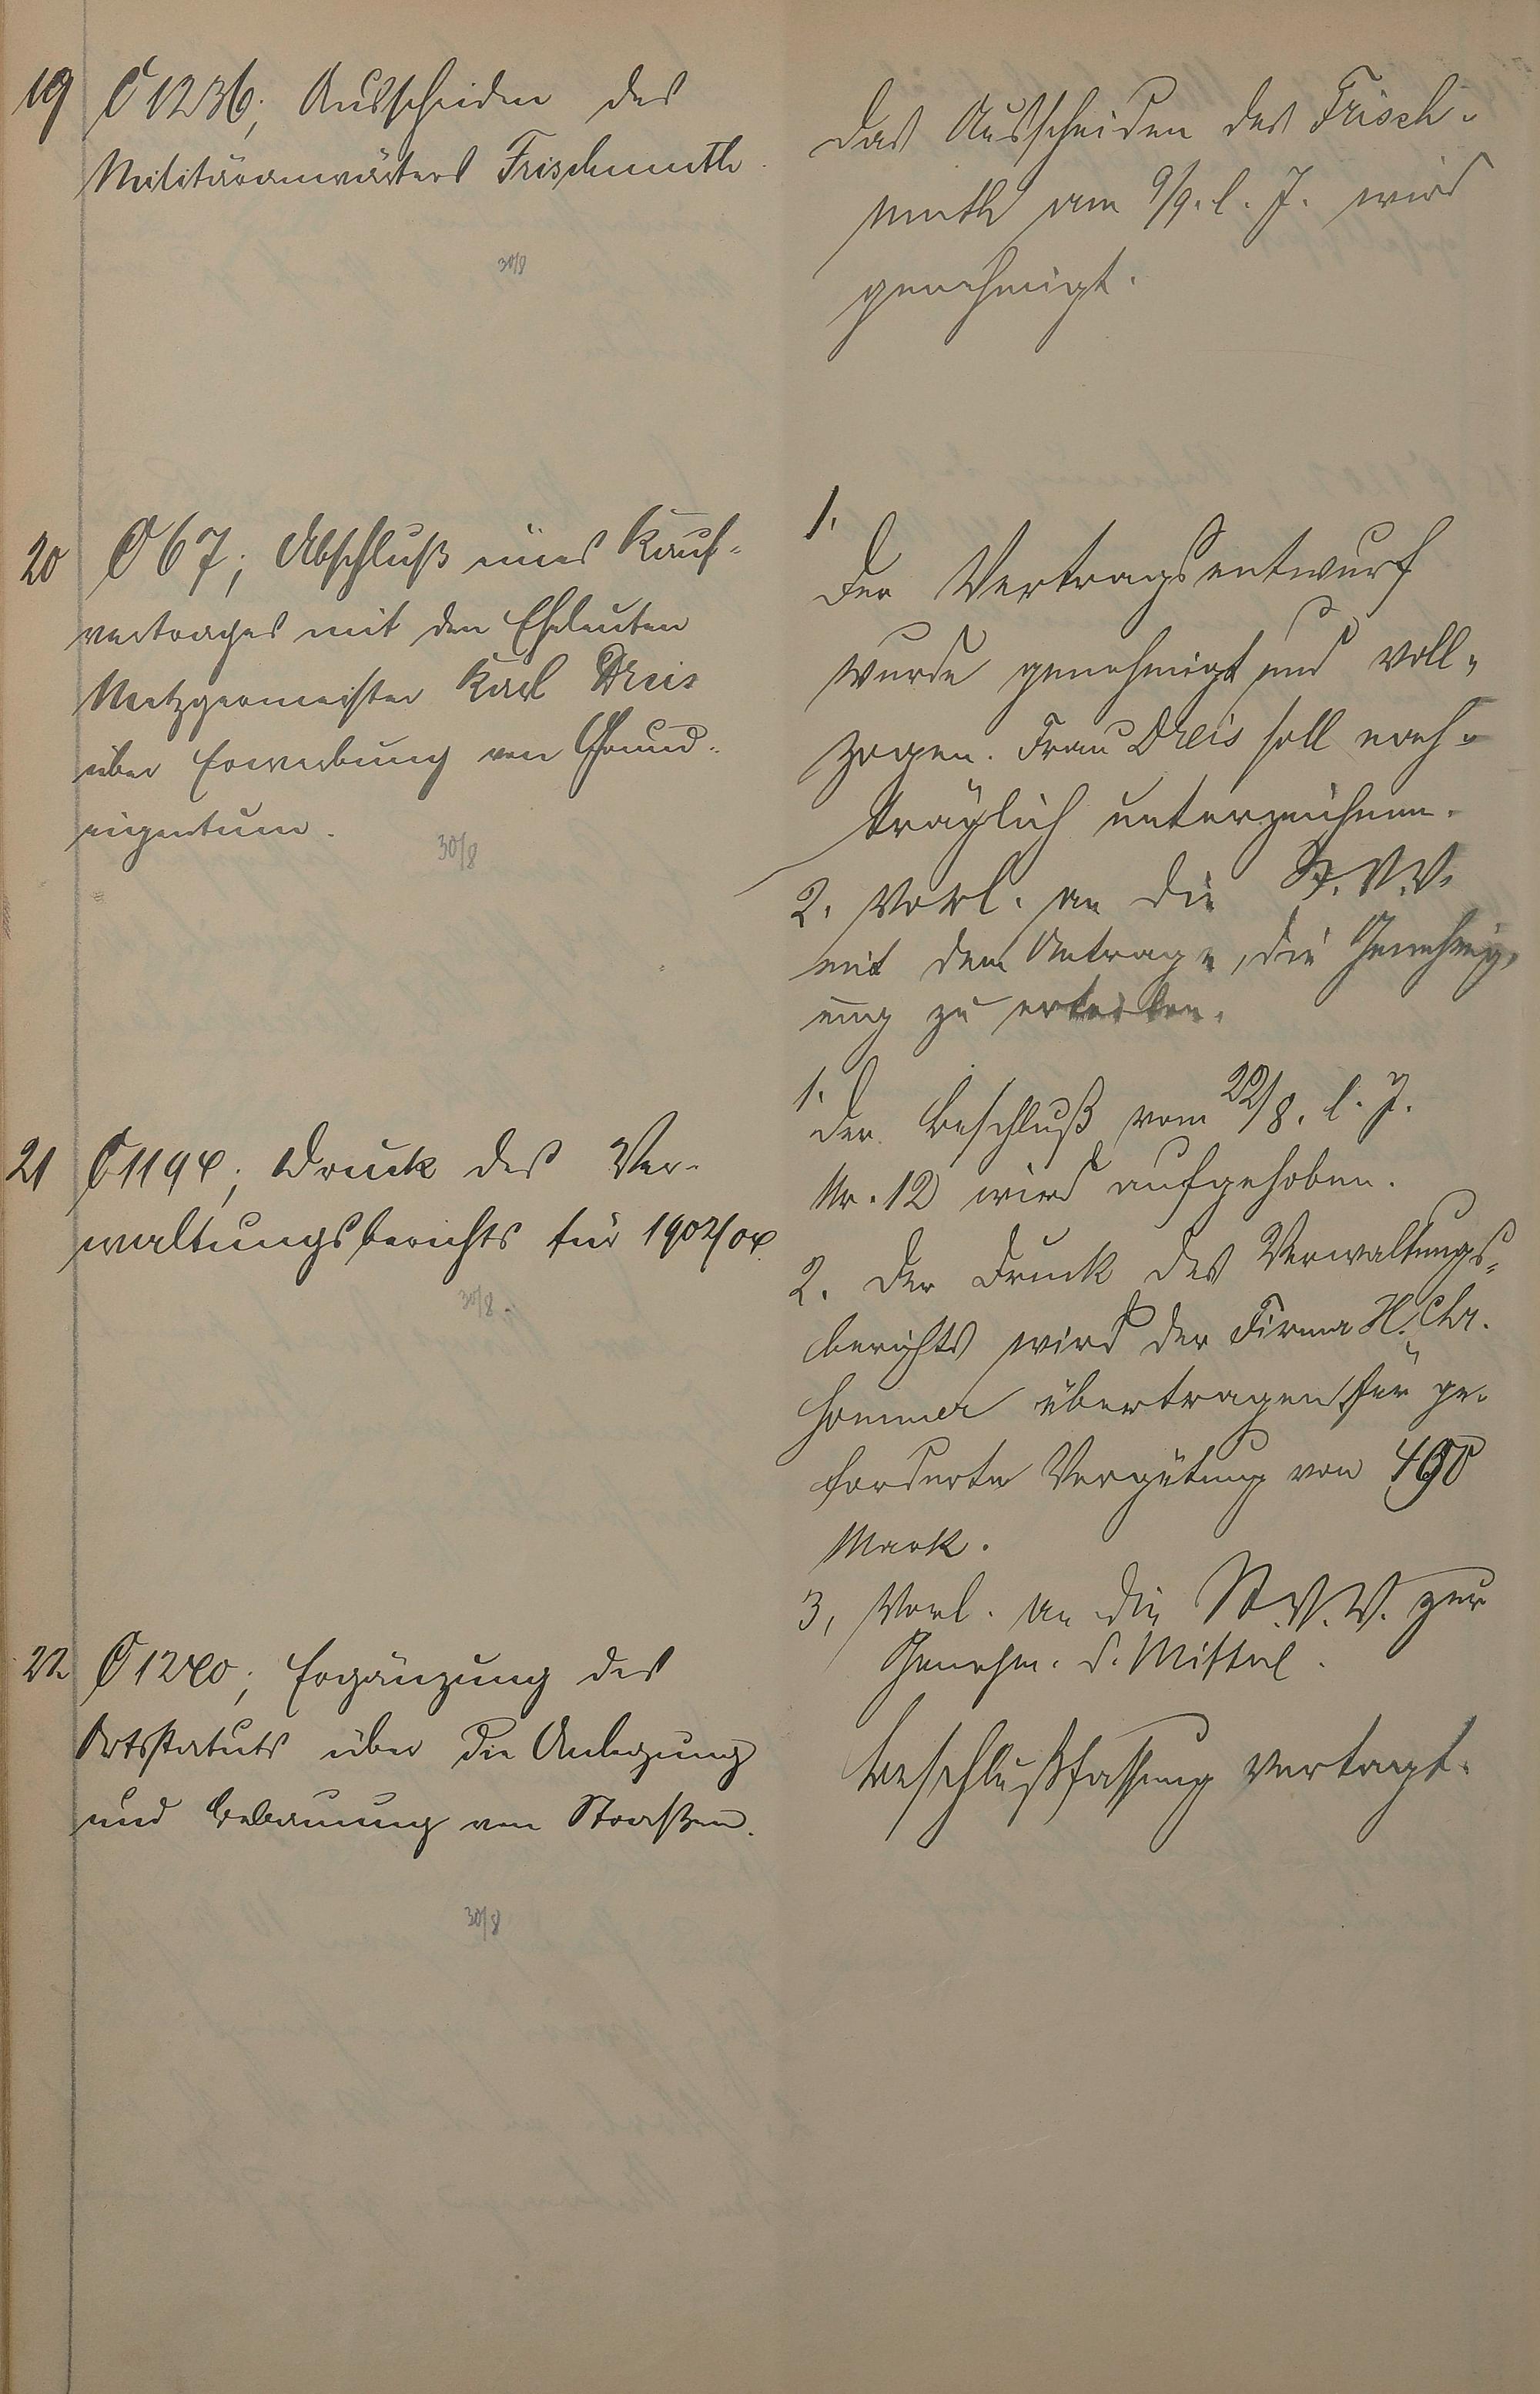 19 C 1236; Ausscheiden des
Militäranwärters Frischmuth.
30/8
Das Ausscheiden des Frisch-
muth am 9/9. l. J. wird
genehmigt.
20 C 67; Abschluß eines Kauf-
vertrages mit den Eheleuten
Metzgermeister Karl Dreis
über Erwerbung von Grund-
eigentum.
30/8
1.
Der Vertragsentwurf
wurde genehmigt und voll-
zogen. Frau Dreis soll nach-
träglich unterzeichnen.
2. Vorl. an die St.V.V.
mit dem Antrage, die Genehmig-
ung zu erteilen.
21 C 1194; Druck des Ver-
waltungsberichts für 1902/04
30/8.
1.
Der Beschluß vom 22/8. l. J.
Nr. 12 wird aufgehoben.
2. Der Druck des Verwaltungs-
berichts wird der Firma H. Chr.
Sommer übertragen für ge-
forderte Vergütung von
Mark.
3, Vorl. an die St.V.V. zur
Genehm. d. Mittel.
22 C 1240; Ergänzung des
Ortsstatuts über die Anlegung
und Bebauung von Straßen.
30/8
Beschlußfassung vertagt.